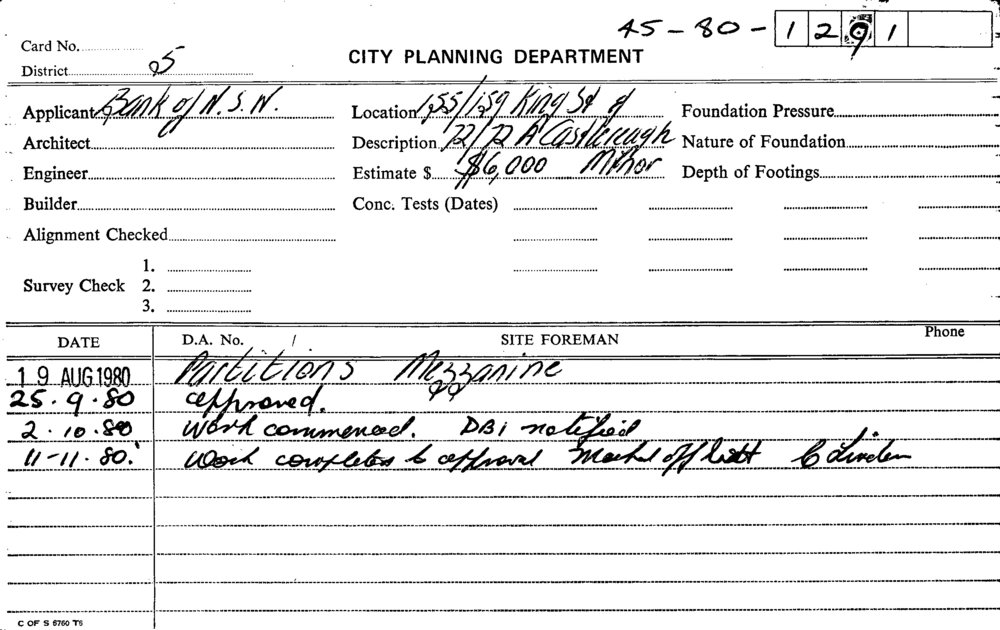 45-80-1291
Card No.
District 5
CITY PLANNING DEPARTMENT
Applicant Bank of N.S.W.
Location 155/159 King St &
Foundation Pressure
Architect
Description 72/72A Castlereagh
Nature of Foundation
Engineer
Estimate $ $6,000 Minor
Depth of Footings
Builder
Conc. Tests (Dates)
Alignment Checked
1.
Survey Check 2.
3.
DATE D.A. No. SITE FOREMAN Phone
19 AUG 1980 Partitions Mezzanine
25.9.80 approved.
2.10.80 Work commenced. DBI notified
11-11.80. Work completed to approval off list
C OF S 6760 T6